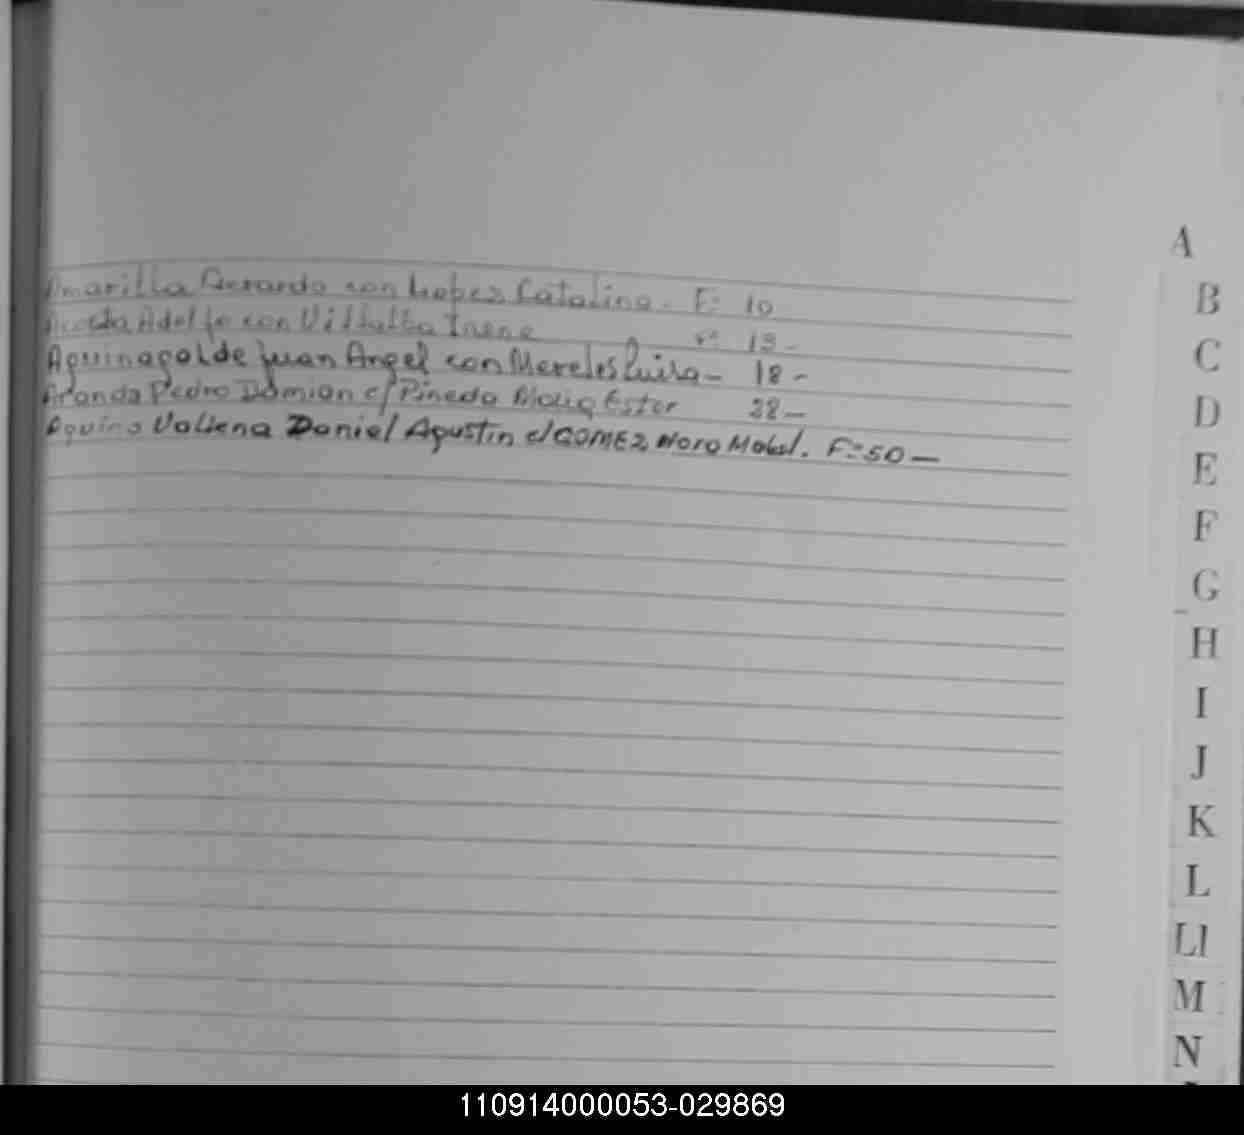 Amarilla Gerardo con Lopez Catalina. F: 10
Acosta Adolfo con Villalba Irene Fº 13-
Aguinagalde Juan Angel con Mereles Luisa- 18-
Aranda Pedro Damian c/ Pineda Maria Ester 28-
Aquino Vallena Daniel Agustin c/ GOMEZ Nora Mabel. F=50-
A
B
C
D
E
F
G
H
I
J
K
L
Ll
M
N
110914000053-029869